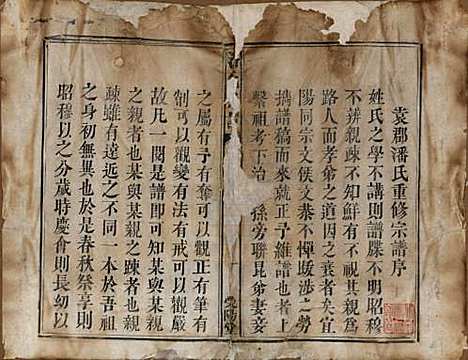 袁郡潘氏重修宗譜序
姓氏之學不講則譜牒不明昭穆
不辨親疎不知鮮有不視其親爲
路人而孝弟之道衰矣者宜
陽同宗文侯文恭不憚跋涉之勞
擕譜稿而來就正予維譜也者
繫祖考下治 孫旁聯昆弟妻妾
之屬有予有奪可以觀正有筆有
制可以觀變有法有戒可以觀嚴
故凡一閱是譜即可知某與某親
之親者也某與某親之踈者也親
疎雖有遠近之不同一本於吾祖
之身初無異也於是春秋祭享則
昭穆以之分歲時慶會則長幼以